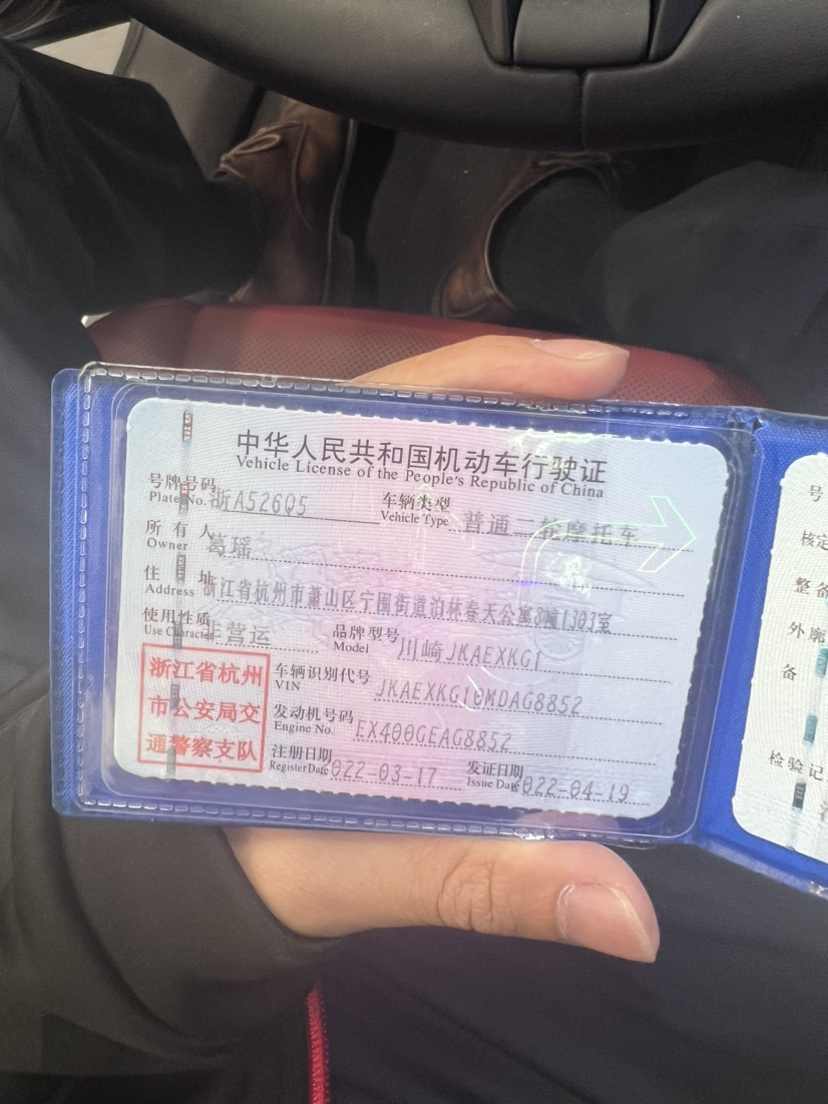 中华人民共和国机动车行驶证
Vehicle License of the People's Republic of China
号牌号码 浙A526Q5 车辆类型 普通二轮摩托车
Plate No. Vehicle Type
所有人 葛瑶
Owner
住址 浙江省杭州市萧山区宁围街道泊林春天公寓8幢1303室
Address
使用性质 非营运 品牌型号 川崎JKAEXKG1
Use Character Model
浙江省杭州
市公安局交
通警察支队
车辆识别代号 JKAEXKG10MDAG8852
VIN
发动机号码 EX400GEAG8852
Engine No.
注册日期 022-03-17 发证日期 022-04-19
Register Date Issue Date
号
核定
整备
外廓
备
检验记